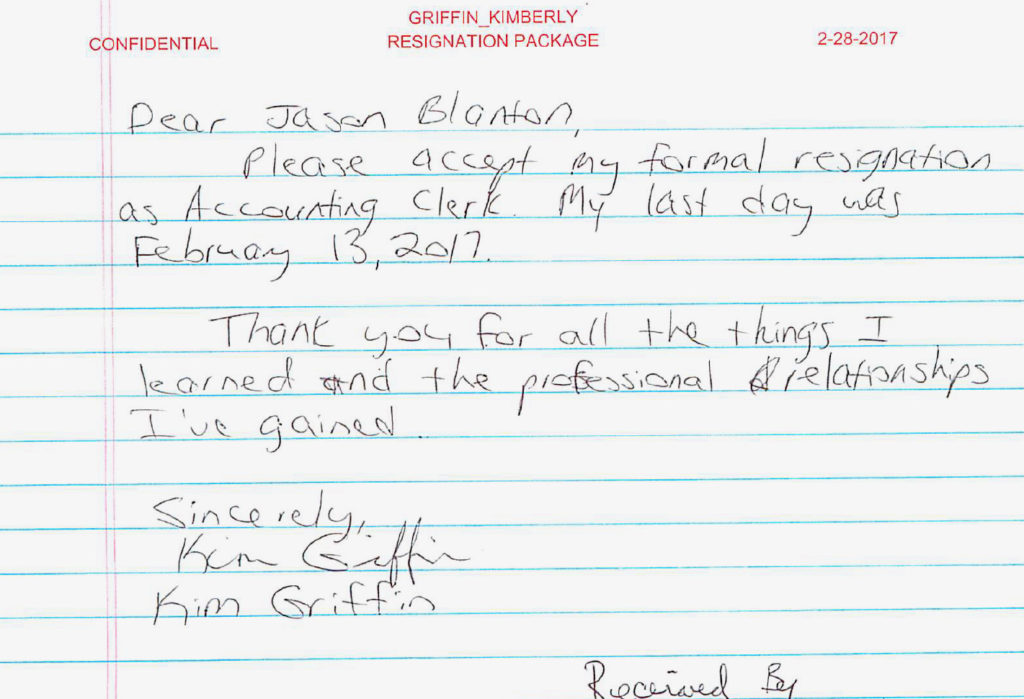 GRIFFIN_KIMBERLY
CONFIDENTIAL RESIGNATION PACKAGE 2-28-2017
Dear Jason Blanton,
Please accept my formal resignation
as Accounting Clerk. My last day was
February 13, 2017.
Thank you for all the things I
learned and the professional relationships
I've gained.
Sincerely,
Kim Griffin
Kim Griffin
Received By